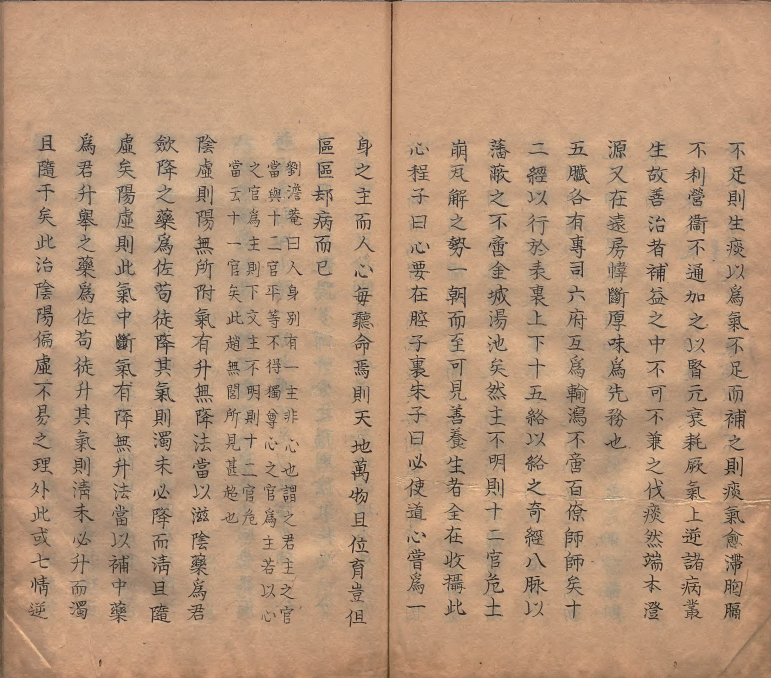 不足則生痰以爲氣不足而補之則痰氣愈滯胸膈
不利營衞不通加之以腎元衰耗厥氣上逆諸病叢
生故善治者補益之中不可不兼之伐痰然端本澄
源又在遠房幃斷厚味爲先務也
五臟各有專司六府互爲輸瀉不啻百僚師師矣十
二經以行於表裏上下十五絡以絡之奇經八脉以
藩蔽之不啻金城湯池矣然主不明則十二官危土
崩瓦解之勢一朝而至可見善養生者全在收攝此
心程子曰心要在腔子裏朱子曰必使道心嘗爲一
身之主而人心每聽命焉則天地萬物且位育豈但
區區却病而已
劉澹菴曰人身別有一主非心也謂之君主之官
當與十二官平等不得獨尊心之官爲主若以心
之官爲主則下文主不明則十二官危
當云十一官矣此趙無閭所見甚超也
陰虛則陽無所附氣有升無降法當以滋陰藥爲君
歛降之藥爲佐苟徒降其氣則濁未必降而淸且隨
虛矣陽虛則此氣中斷氣有降無升法當以補中藥
爲君升舉之藥爲佐苟徒升其氣則淸未必升而濁
且隨干矣此治陰陽偏虛不易之理外此或七情逆